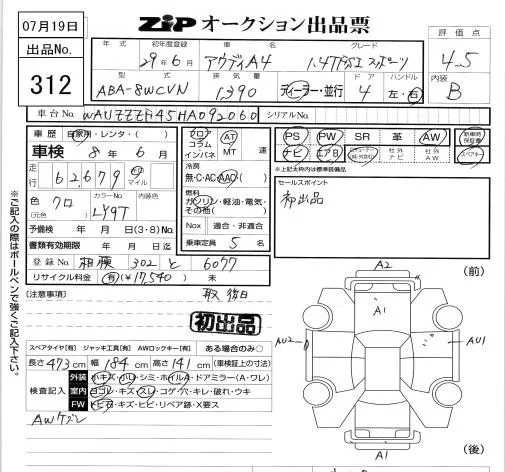 07月19日
ZIP オークション出品票
出品No.
312
年式 初年度登録 車名 グレード
29年6月 アウディA4 1.4TFSI スポーツ
評価点
4.5
型式 排気量 ドア ハンドル
ABA-8WCVN 1390 ディーラー・並行 4 左・右
内装
B
車台No. シリアルNo.
車歴 自家用・レンタ・( )
車検 8年 6月
走行 62,679 キロ マイル
色 (元色) クロ カラーNo. LY9T 内装色
予備検 年 月 日(3・8)No.
書類有効期限 年 月 日迄
登録No. 相模 302 と 6077
リサイクル料金 有(¥17,540) 未
フロア コラム インパネ AT MT 速
冷房 無・C・AC・AAC( )
燃料 ガソリン・軽油・電気・その他( )
Nox 適合・非適合
乗車定員 5 名
PS PW SR 革 AW
ナビ エアB 社外ナビ 社外AW
新車時保証書
スペアキー
*上記太枠内は標準装備品
セールスポイント
初出品
[注意事項] 取後日
初出品
スペアタイヤ[有] ジャッキ工具[有] AWロックキー[有] ある場合のみ○
長さ473cm 幅184cm 高さ141cm (車検証上の寸法)
検査記入
外装 小キズ・小凹・シミ・ホイルA・ドアミラー(A・ワレ)
室内 ヨゴレ・キズ・スレ・コゲ・穴・キレ・破れ・ウキ
FW トビ石・キズ・ヒビ・リペア跡・X要ス
AWケズレ
※ご記入の際はボールペンで強くご記入下さい。
(前)
A2
A1
AU2
AU1
A1
(後)